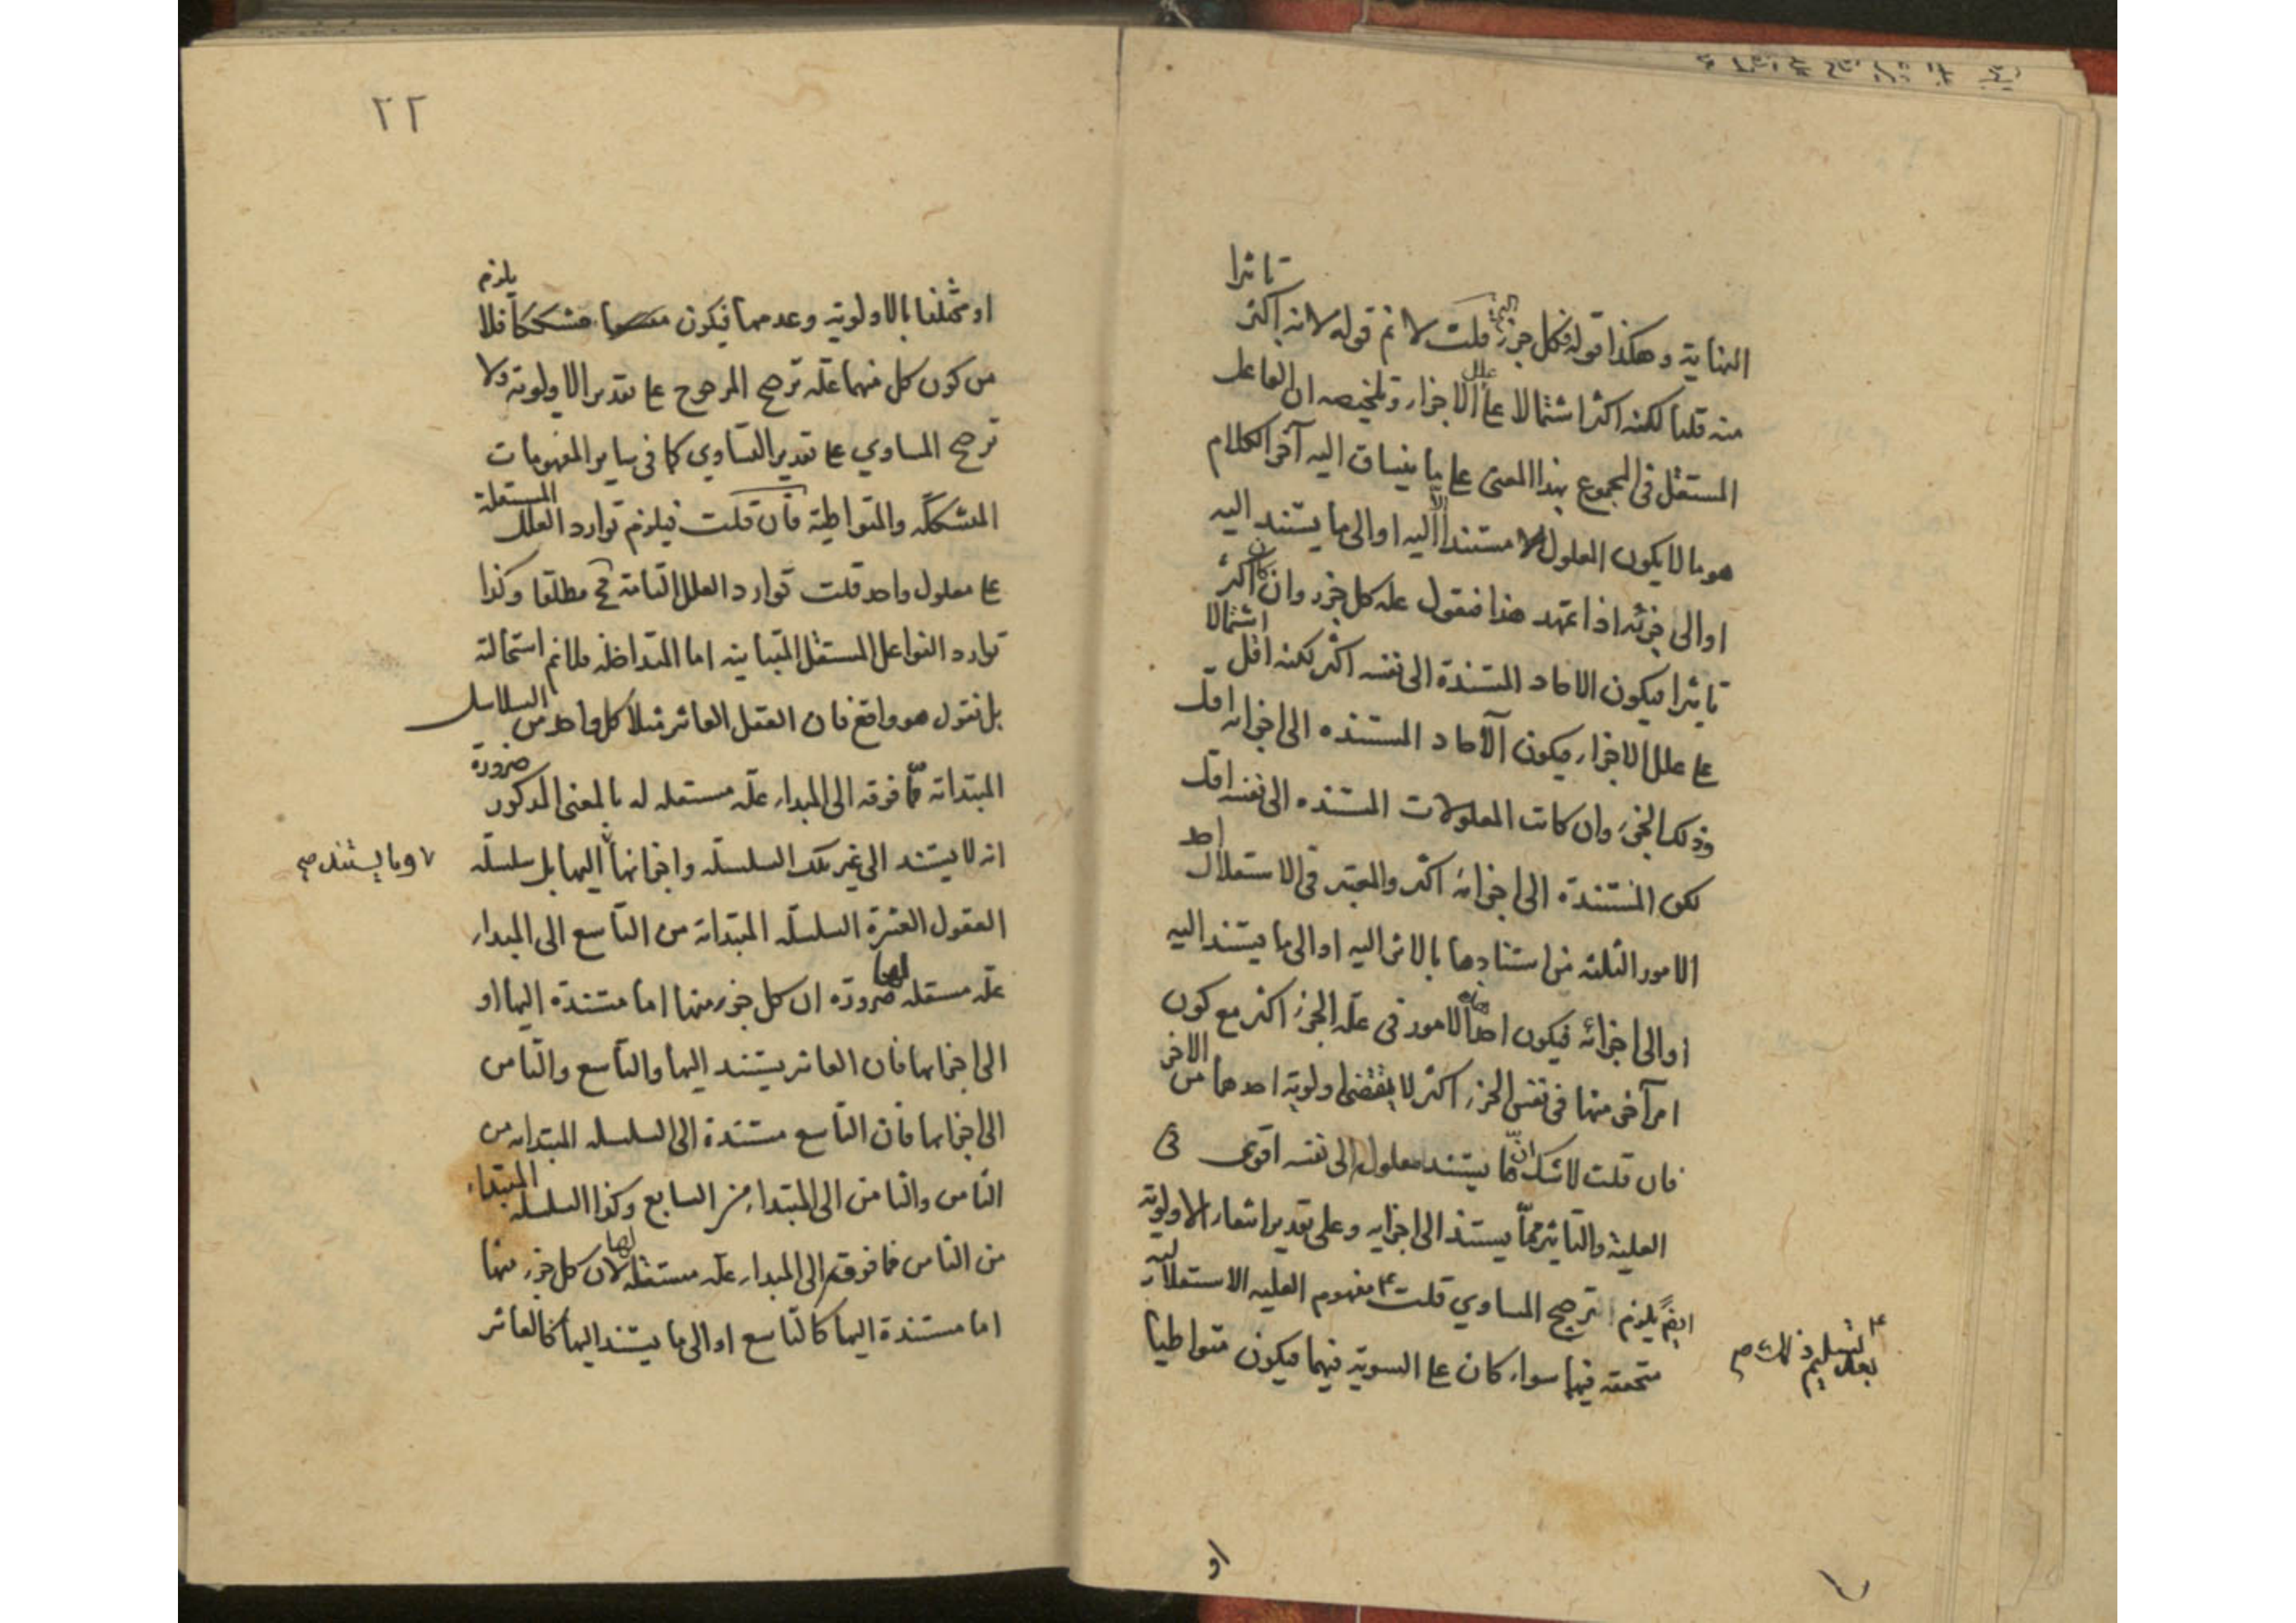 تاثيرا
النهاية وهكذا قوله فكل جزء قلت لا نم قوله لانه اكثر
منه قلنا لكنه اكثر اشتمالا على علل الاجزاء وتلخيصه ان الفاعل
المستقل فى المجموع بهذا المعنى على ما ينساق اليه آخر الكلام
هو ما لا يكون المعلول الا مستندا اليه او الى ما يستند اليه
او الى جزئه اذا تمهد هذا فنقول علة كل جزء وان كان اكثر
تاثيرا فيكون الاحاد المستندة الى نفسه اكثر لكنه اقل اشتمالا
على علل الاجزاء فيكون الآحاد المستنده الى اجزائه اقل
وذلك الجزء وان كانت المعلولات المستنده الى نفسه اقل
لكن المستندة الى اجزائه اكثر والمعتبر فى الاستقلال احد
الامور الثلثه من استنادها بالاثر اليه او الى ما يستند اليه
او الى اجزائه فيكون احد الامور فى علة الجزء اكثر مع كون
امر آخر منها فى نفس الجزء اكثر لا يقتضى اولوية احدهما من الاخر
فان قلت لا شك ان ما يستند معلول الى نفسه اقوى فى
العلية والتاثير مما يستند الى اجزايه وعلى تقدير انتفاء الاولوية
ايضً يلزم الترجح المساوي قلت مفهوم العليه الاستقلالية
بعد تسليم ذلك صح
متحققه فيها سواء كان على السوية فيهما فيكون متواطيا
او
٢٢
او مختلفا بالاولوية وعدمها فيكون مشككا فلا يلزم
من كون كل منهما علّه ترجح المرجوح على تقدير الاولوية ولا
ترجح المساوي على تقدير التساوي كما فى ساير المفهومات
المشككه والمتواطية فان قلت فيلزم توارد العلل المستقلة
على معلول واحد قلت توارد العلل التامة مح مطلقا وكذا
توارد الفواعل المستقل المتباينه اما المتداخله فلا نم استحالته
بل نقول هو واقع فان العقل العاشر مثلا كل واحد من السلاسل
المبتداة مما فوقه الى المبداء علّه مستقله له بالمعنى المذكور ضرورة
انه لا يستند الى غير تلك السلسله واجزائها اليها بل سلسلة
وما يستند صح
العقول العشرة السلسله المبتداة من التاسع الى المبداء
علّه مستقله لها ضرورة ان كل جزء منها اما مستندة اليها او
الى اجزائها فان العاشر يستند اليها والتاسع والثامن
الى اجزائها فان التاسع مستندة الى السلسله المبتداة من
الثامن والثامن الى المبتداء من السابع وكذا السلسله المبتداء
من الثامن فما فوقه الى المبداء علّه مستقله لها لان كل جزء منها
اما مستندة اليها كالتاسع او الى ما يستند اليها كالعاشر